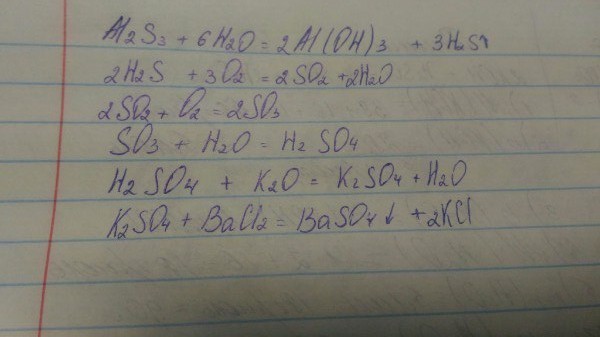 Al2S3 + 6H2O = 2Al(OH)3 + 3H2S↑
2H2S + 3O2 = 2SO2 + 2H2O
2SO2 + O2 = 2SO3
SO3 + H2O = H2SO4
H2SO4 + K2O = K2SO4 + H2O
K2SO4 + BaCl2 = BaSO4↓ + 2KCl